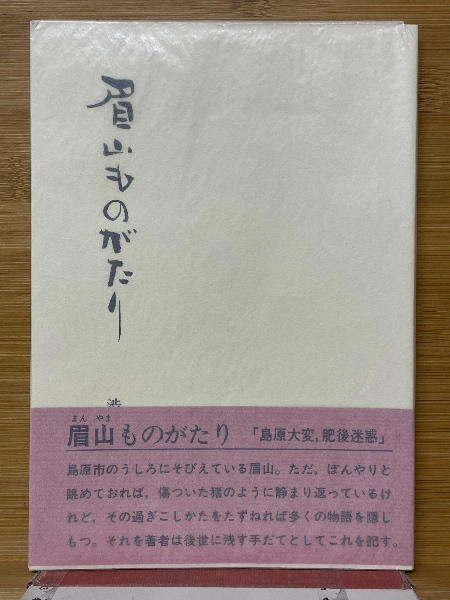 眉山ものがたり
渋
まん やま
眉山ものがたり 「島原大変，肥後迷惑」
島原市のうしろにそびえている眉山。ただ，ぼんやりと
眺めておれば，傷ついた猪のように静まり返っているけ
れど，その過ぎこしかたをたずねれば多くの物語を隠し
もつ。それを著者は後世に残す手だてとしてこれを記す。